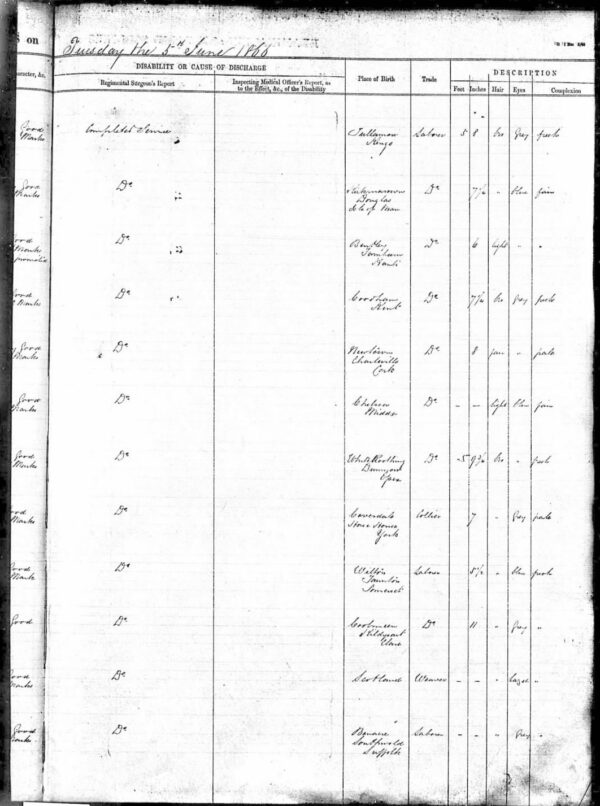 S on
Tuesday the 5th June 1866
DISABILITY OR CAUSE OF DISCHARGE
DESCRIPTION
Character, &c.
Regimental Surgeon's Report
Inspecting Medical Officer's Report, as
to the Effect, &c., of the Disability
Place of Birth
Trade
Feet Inches Hair Eyes Complexion
Good
Marks
Completed Service
Tullamore
Kings
Labour 5 8 Bro Grey fresh
Good
Marks
Do
Douglas
Isle of Man
Do 7½ " Blue fair
Good
Marks
Do
Bentley
Farnham
Hants
Do 6 light " "
Good
Marks
Do
Kent
Do 7½ Bro Grey fresh
Good
Marks
Do
Newtown
Charleville
Cork
Do 8 " fresh
Good
Marks
Do
Chelsea
Middx
Do - - light Blue fair
Good
Marks
Do
White Roothing
Dunmow
Essex
Do 5 9¾ Bro " fresh
Good
Marks
Do
York
Collier 7 " Grey
Good
Marks
Do
Wilton
Taunton
Somerset
Labour 5½ " Blue fresh
Good
Do
Clare
Do 11 " Grey "
Good
Marks
Do
Scotland
Weaver - - " hazel "
Good
Marks
Do
Benacre
Southwold
Suffolk
Labour - - " Grey "